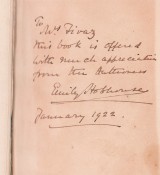 To
Mrs Fivaz
this book is offered
with much appreciation
from the
Emily Hobhouse
January 1922.